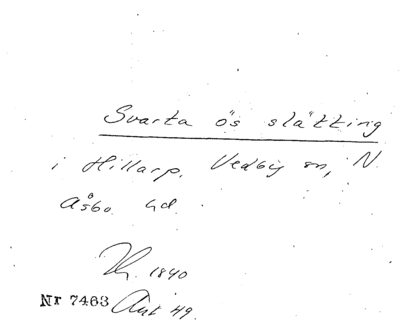 Svarta ö's slätting
i Hillarp, Vedby sn, N.
Åsbo hd.
1840
Nr 7463 49.